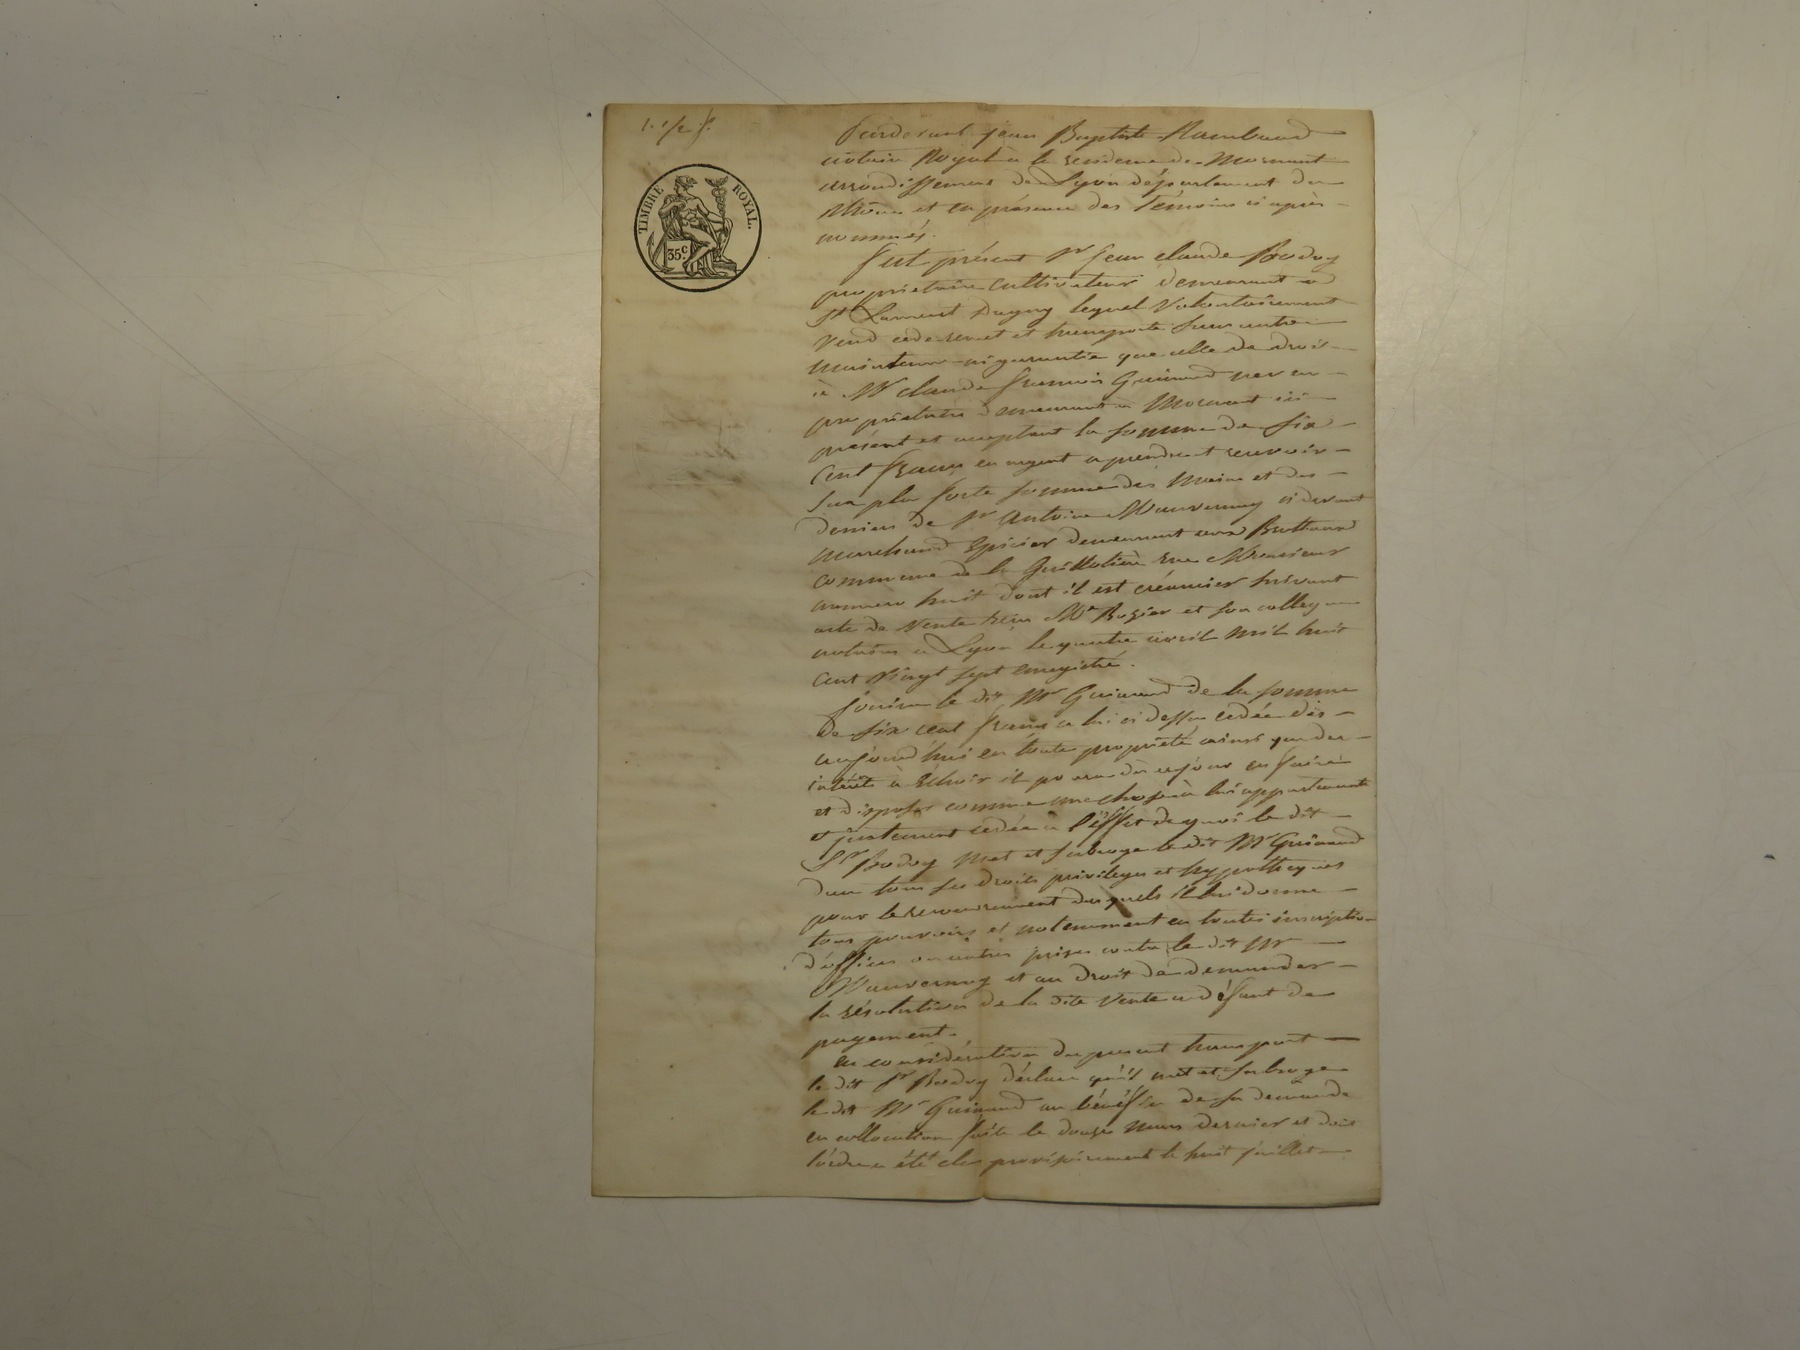 1. 1/2 f.
TIMBRE ROYAL.
35c
Pardevant jean Baptiste Rambaud
notaire Royal à la residence de Mornant
arrondissement de Lyon département du
Rhône et en présence des Témoins ci après
nommés.
fut présent Sr jean claude Bodoy
propriétaire cultivateur demeurant a
St Laurent Dagny lequel volontairement
vend cede remet et transporte sans autre
maintenue ni garantie que celle de droit
à Mr claude francois Guinand
propriétaire demeurant à Mornant ici
présent et acceptant la somme de six
cent francs en argent a prendre et recevoir
sur plus forte somme des mains et des
deniers de Sr Antoine Mauvernay ci devant
marchand Epicier demeurant aux Brotteaux
commune de la Guillotière rue Monsieur
numero huit dont il est créancier suivant
acte de vente reçu Me Rozier et son collegue
notaires a Lyon le quatre avril mil huit
cent vingt sept enregistré.
Jouira le dit Mr Guinand de la somme
de six cent francs a lui ci dessus cedée dès
aujourd'hui en toute propriété ainsi que des
intérêts à échoir il pourra dès ce jour en faire
et disposer comme une chose à lui appartenante
et justement cedée à l'éffet de quoi le dit
Sr Bodoy met et subroge le dit Mr Guinand
dans tous ses droits privileges et hypothèques
pour le recouvrement desquels il lui donne
tous pouvoirs et notamment en toutes inscription
d'offices ou autres prises contre le dit Sr
Mauvernay et au droit de demander
la résolution de la dite vente a défaut de
payement.
En considération du present transport
le dit Sr Bodoy déclare qu'il met et subroge
le dit Mr Guinand au bénéfice de sa demande
en collocation faite le douze mars dernier et dont
l'ordre a été clos provisoirement le huit juillet